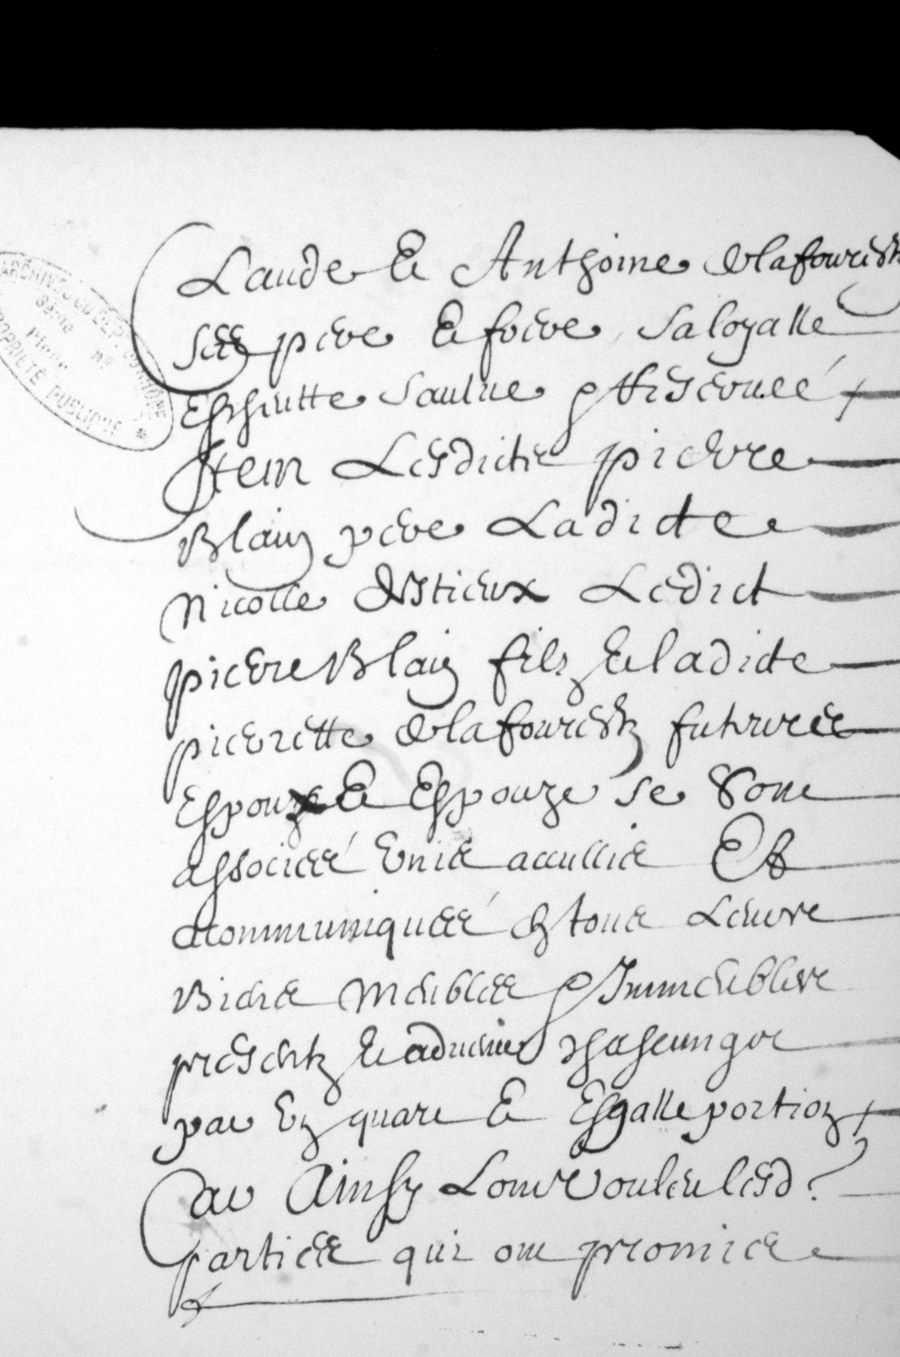 ARCHIVES DU DEP. DE L'YONNE
Série
n°
PROPRIETE PUBLIQUE
Laude & Anthoine delafourestz
ses pere & frere, saloyalle
Eschutte saulue & reseruee
Item Lesdictz pierre
Blain pere Ladicte
Nicolle Ledict
pierre Blain filz & ladicte
pierrette delafourestz futures
Espoux & Espouze se sont
associes unis accullis Et
acommuniques en tous Leurs
Biens Meubles & Immeubles
presentz & aduenir chascung
par ung quart & Esgalle portion
Car Ainsy Lont voulu lesd.
parties qui ont promis